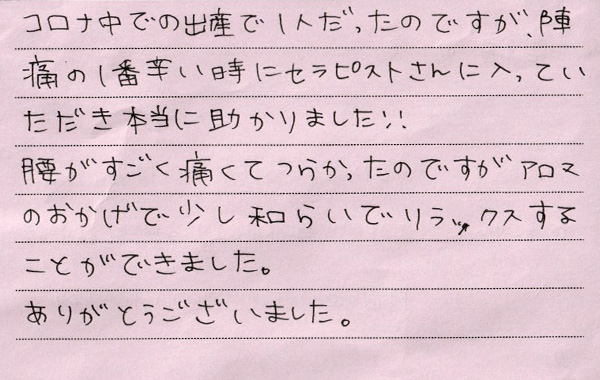 コロナ中での出産で1人だったのですが、陣
痛の1番辛い時にセラピストさんに入ってい
ただき本当に助かりました!!
腰がすごく痛くてつらかったのですがアロマ
のおかげで少し和らいでリラックスする
ことができました。
ありがとうございました。